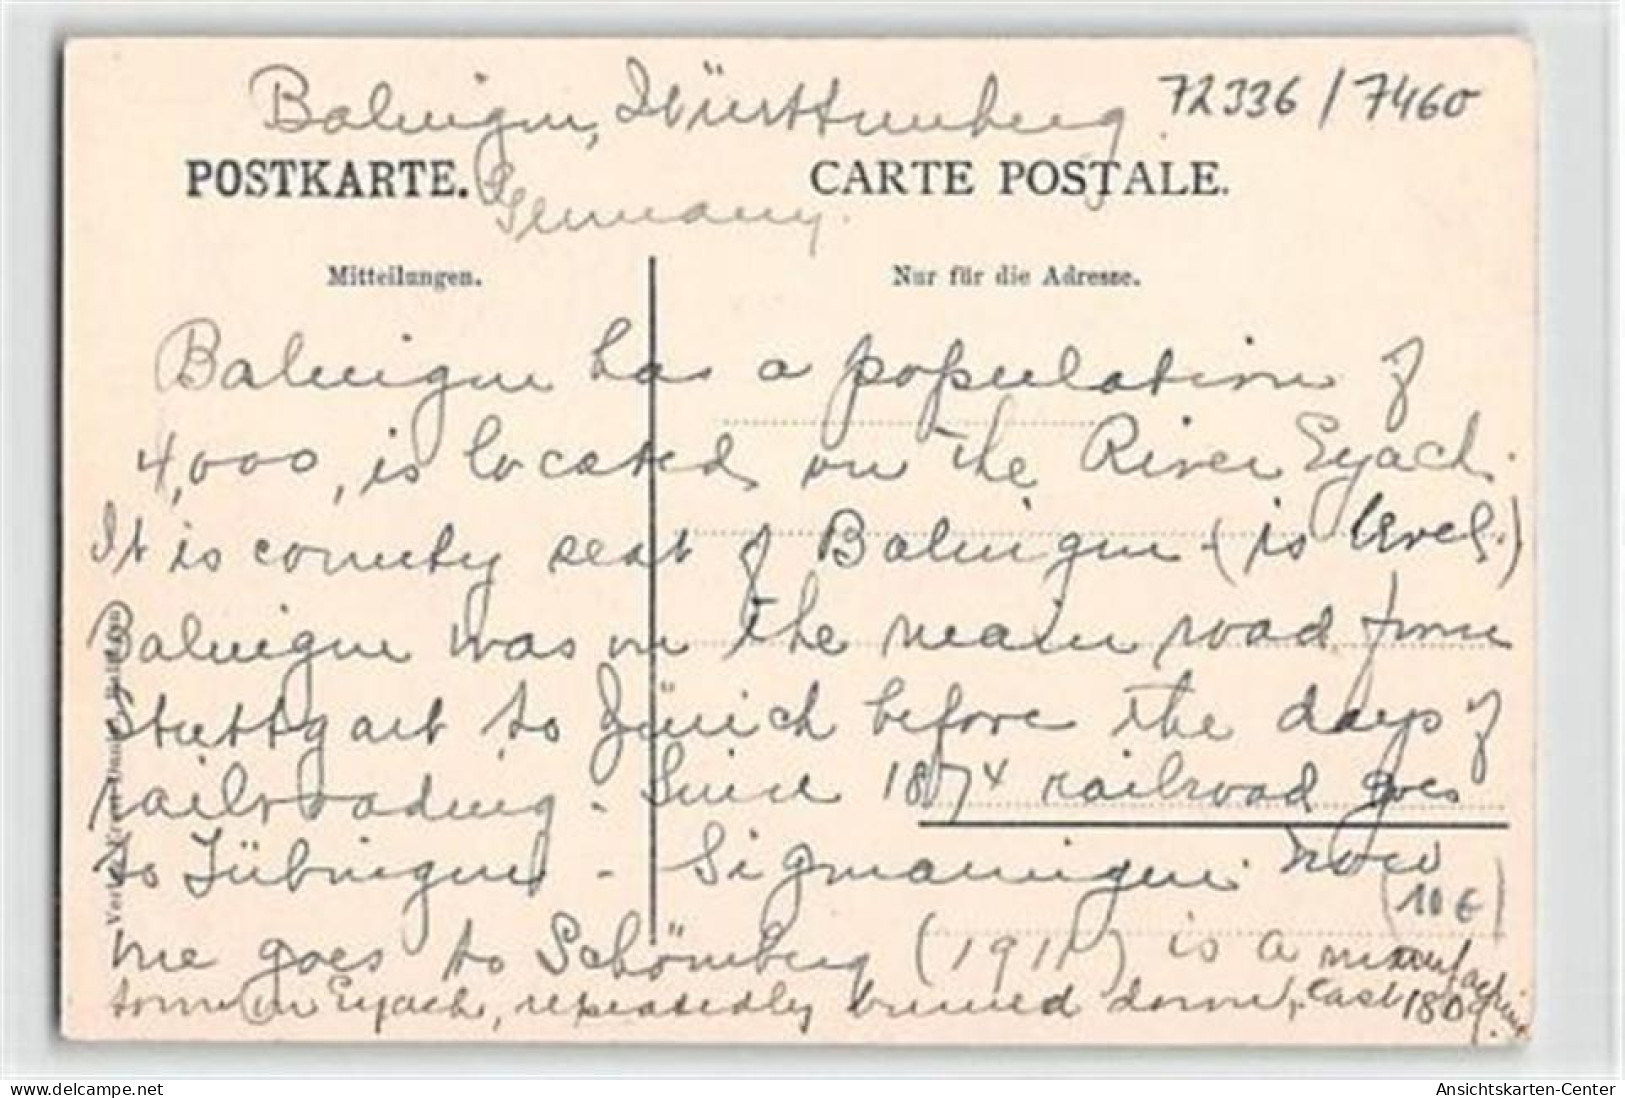 Balingen, Württemberg.
72336/7460
Germany.
POSTKARTE.
CARTE POSTALE.
Mitteilungen.
Nur für die Adresse.
Balingen has a population of
4,000, is located on the River Eyach.
It is county seat of Balingen - (is level.)
Balingen was on the main road from
Stuttgart to Zürich before the days of
railroading - Since 1874 railroad goes
to Tübingen - Sigmaringen. Now
(10 €)
one goes to Schömberg (1911) is a manufacturing
town on Eyach, repeatedly burned down, last 1809.
Verlag Balingen
delcampe.net
Ansichtskarten-Center